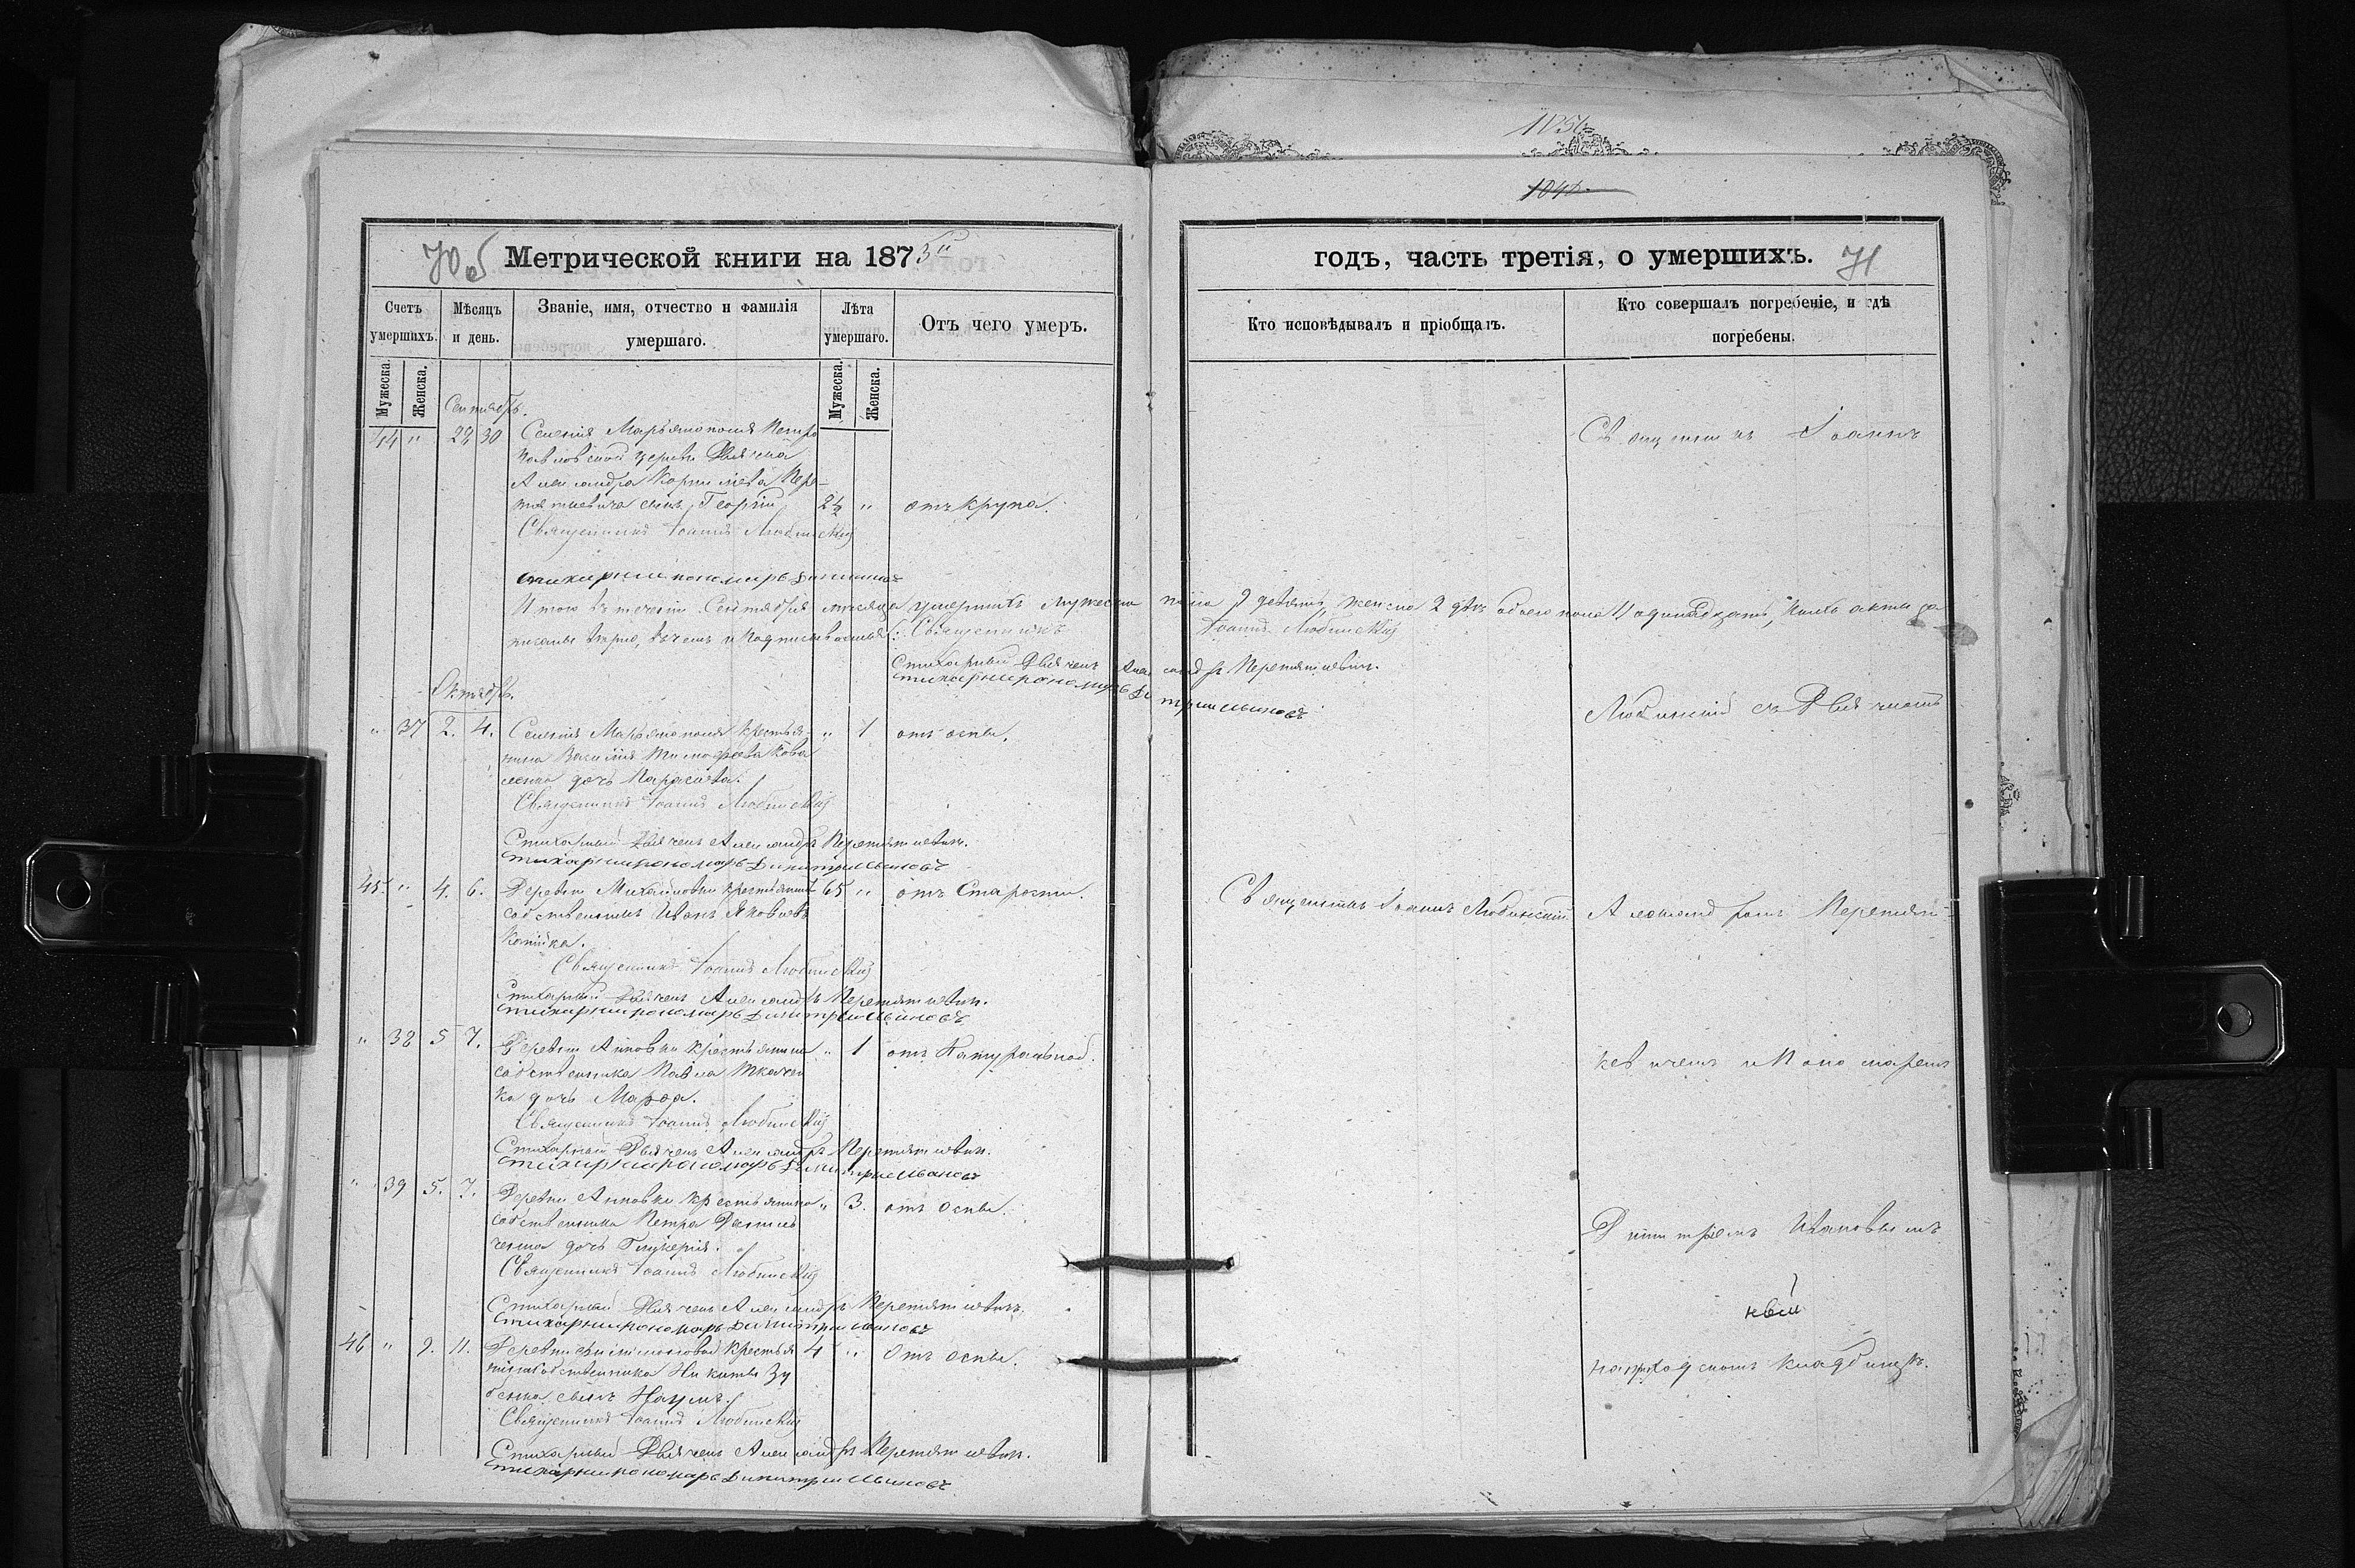 1056
1042
70 об
Метрической книги на 1875й
годъ, часть третія, о умершихъ.
71
Счетъ умершихъ.
Мѣсяцъ и день.
Званіе, имя, отчество и фамилія умершаго.
Лѣта умершаго.
Отъ чего умеръ.
Кто исповѣдывалъ и пріобщалъ.
Кто совершалъ погребеніе, и гдѣ погребены.
Мужеска. Женска.
Мужеска. Женска.
Сентябрь.
44 " 28 30 Селенія Марьяполя Петро
павловской церкви Дьячка
Александра Корнилієва Пере-
тяткевича сынъ Георгій 2½ " отъ крупа.
Священникъ Іоаннъ Любинскій
Стихарный пономарь Димитрій
Итого въ теченіи Сентября мѣсяца умершихъ мужеска пола 9 девять, женска 2 двѣ обоего пола 11 одинадцать, коихъ акты за
писаны вѣрно, въ чемъ и подписываемся: Священникъ Іоаннъ Любинскій
Стихарный Дьячекъ Александръ Перетяткевичъ.
Стихарный пономарь Димитрій Ивановъ
Октябрь.
" 37 2. 4. Селенія Марьяполя крестья- " 1 отъ оспы.
нина Василія Тимофеева Кова
ленка дочь Параскева.
Священникъ Іоаннъ Любинскій
Стихарный Дьячекъ Александръ Перетяткевичъ.
Стихарный пономарь Димитрій Ивановъ
45 " 4. 6. Деревни Михайловки крестьянинъ 65 " отъ Старости.
собственникъ Иванъ Яковлевъ
Священникъ Іоаннъ Любинскій
Стихарный Дьячекъ Александръ Перетяткевичъ.
Стихарный пономарь Димитрій Ивановъ
" 38 5 7. Деревни Анновки крестьянина " 1 отъ Натуральной.
собственника Павла Ткачен
ка дочь Марфа.
Священникъ Іоаннъ Любинскій
Стихарный Дьячекъ Александръ Перетяткевичъ.
Стихарный пономарь Димитрій Ивановъ
" 39 5. 7. Деревни Анновки крестьянина " 3. отъ Оспы.
собственника Петра Даниль
ченка дочь Гликерія.
Священникъ Іоаннъ Любинскій
Стихарный Дьячекъ Александръ Перетяткевичъ.
Стихарный пономарь Димитрій Ивановъ
46 " 9. 11. Деревни Филимоновой крестья 4 " Отъ оспы.
нина собственника Никиты Зу
бенка сынъ Наумъ.
Священникъ Іоаннъ Любинскій
Стихарный Дьячекъ Александръ Перетяткевичъ.
Стихарный пономарь Димитрій Ивановъ
Священникъ Іоаннъ Любинскій
Священникъ Іоаннъ
Любинскій съ Дьячкомъ
Александромъ Перетят-
кевичемъ и Пономаремъ
Димитріемъ Ивановымъ
на приходскомъ кладбищѣ.